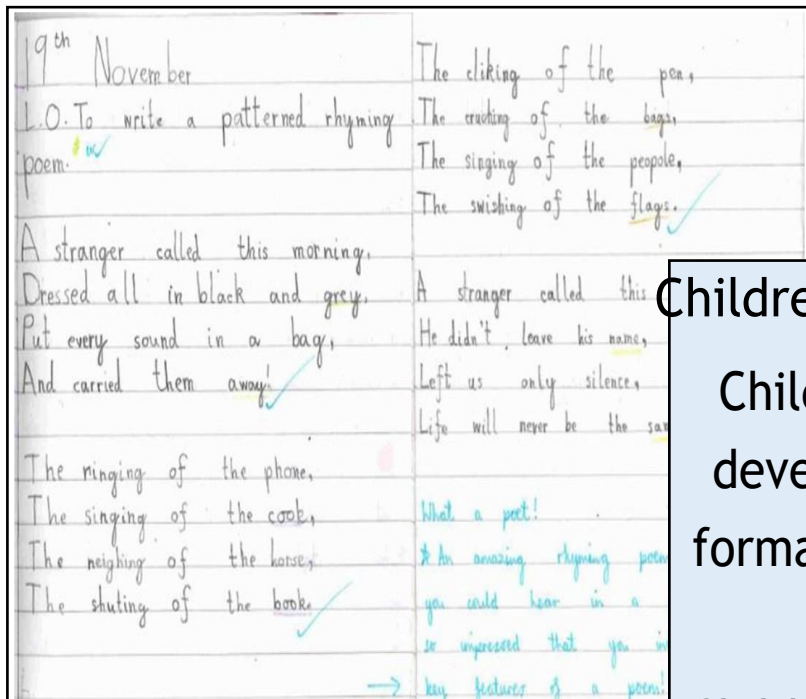 19th November
L.O. To write a patterned rhyming
poem.
A stranger called this morning,
Dressed all in black and grey,
Put every sound in a bag,
And carried them away!
The ringing of the phone,
The singing of the cook,
The neighing of the horse,
The shuting of the book.
The cliking of the pen,
The cruching of the bags,
The singing of the peopole,
The swishing of the flags.
A stranger called this
He didn't leave his name,
Left us only silence,
Life will never be the
What a poet!
* An amazing rhyming poem
you could hear in a
so impressed that you
→ key features of a poem!